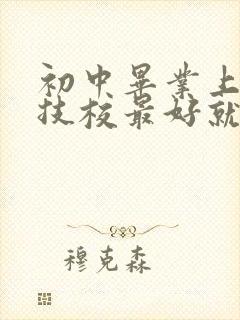 初中畢業上
技校最好就
穆克森